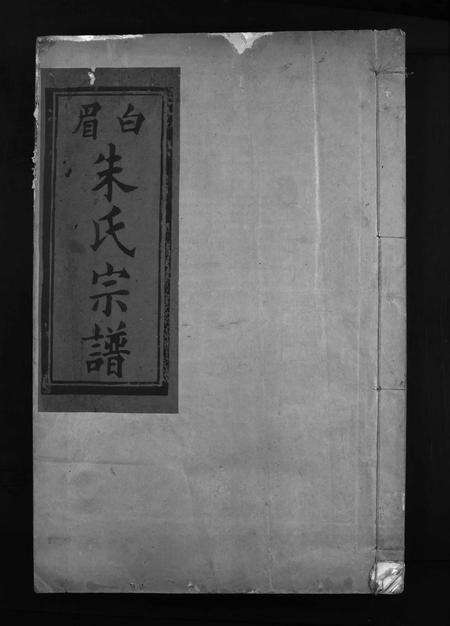 白眉
朱氏宗譜